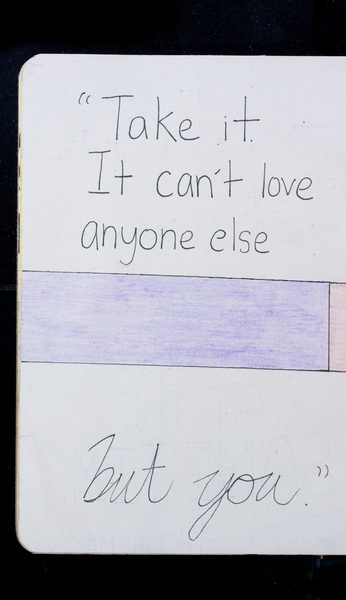 “Take it.
It can't love
anyone else
but you.”